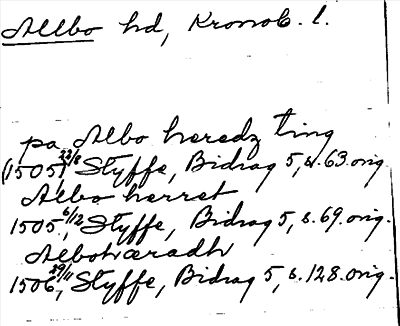 Allbo hd, Kronob. l.
pa Albo heredz ting
(1505 22/8, Styffe, Bidrag 5, s. 63. orig.
Albo herret
1505 6/12, Styffe, Bidrag 5, s. 69. orig.
Albohæradh
1506 29/11, Styffe, Bidrag 5, s. 128. orig.